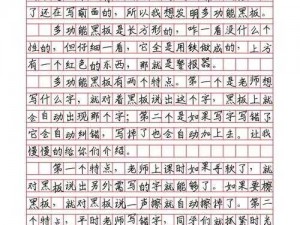 了还在写前面的，所以我想发明多功能黑板。
多功能黑板是长方形的，咋一看没什么个
性的，但仔细一看，它全是用铁做成的，上方
有一个红色的东西，那就是警报器。
多功能黑板有两个特点。第一个是老师想
写什么字，就对着黑板说出这个字，黑板上就
会自动出现那个字；第二个是如果写字写错了
它会自动纠错，写掉了也会自动加上去，让我
慢慢的给你们介绍。
第一个特点，老师上课时如果手软了，就
对黑板说出另外需写的字就能够了。如果要擦
黑板，就对黑板说一声擦就自动擦了。第二
个特点，平时老师写错字，同学们就抓紧时